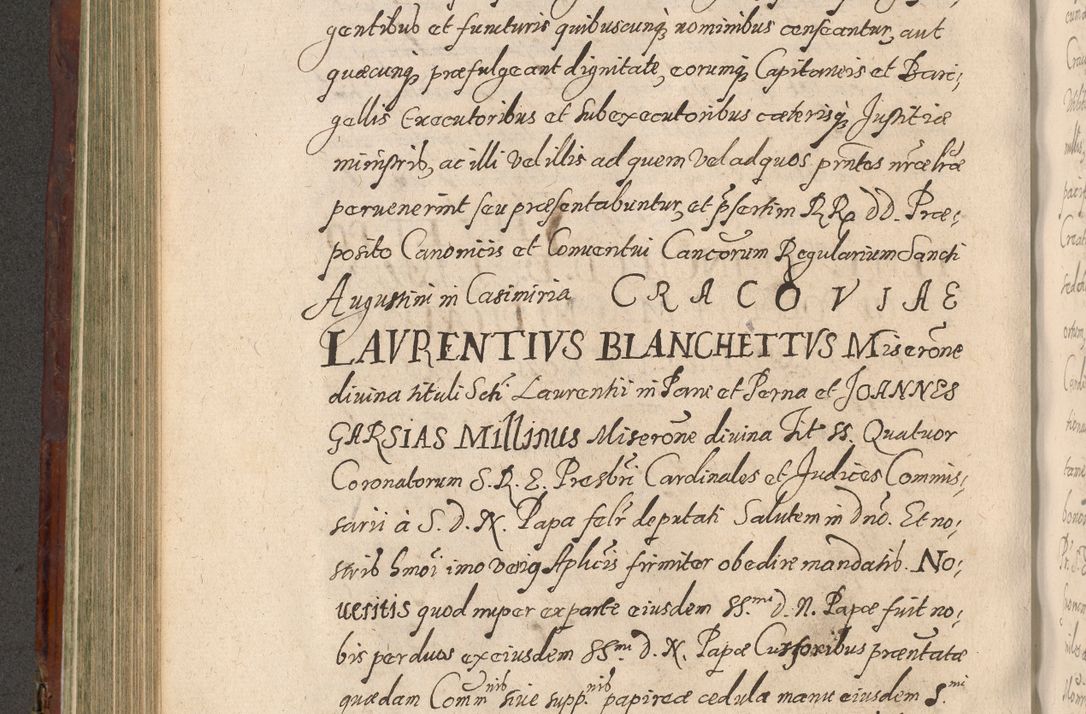 gentibus et functuris quibuscunq; nominibus censeantur, aut
quæcunq; præfulgeant dignitate, eorumq; Capitaneis et Bari,,
gellis Executoribus et Subexecutoribus cæterisq; Justitiæ
ministrib, ac illi vel illis ad quem vel ad quos prñtes nræ lræ
peruenerint seu præsentabuntur, et p̃sertim RR. DD. Præ,,
posito Canonicis et Conuentui Cancõrum Regularium Sancti
Augustini in Casimiria C R A C O V I A E
LAVRENTIVS BLANCHETTVS Miserõne
diuina tituli Scti Laurentii in Pane et Perna et JOANNES
GARSIAS MILLINUS Miserõne diuina Tit SS. Quatuor
Coronatorum S. R. E. Presbri Cardinales et Judices Commis,,
sarii à S. D. N. Papa felr deputati Salutem in Dnõ. Et no,,
strib hmõi imo veriq Aplicis firmiter obedire mandatib. No,,
ueritis quod nuper ex parte eiusdem SS.mi D. N. Papæ fuit no,,
bis per duos ex eiusdem SS.mi D. N. Papæ Cursoribus præntata
quædam Comm.nis siue supp.nis papireæ cedula manu eiusdem S.mi